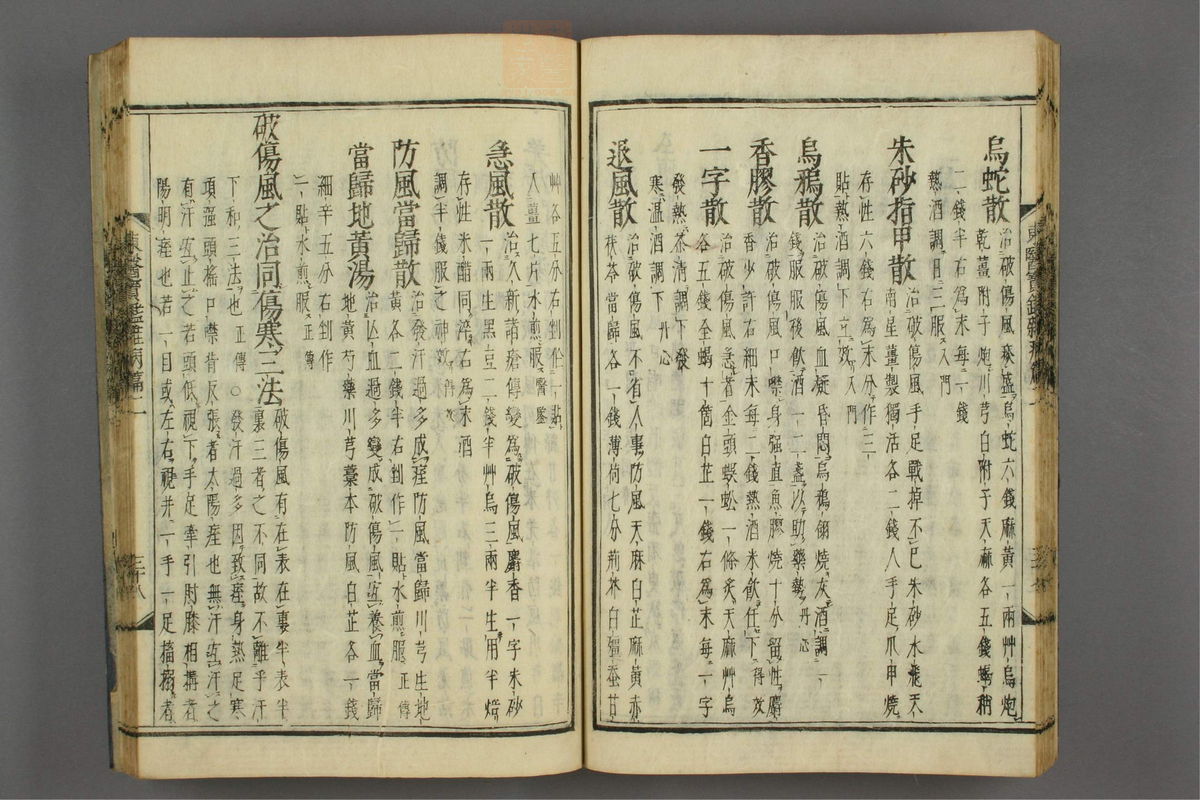 烏蛇散治破傷風痰盛烏蛇六錢麻黃一兩艸烏炮
乾薑附子炮川芎白附子天麻各五錢蝎梢
二錢半右爲末每一錢
熱酒調日三服入門
朱砂指甲散治破傷風手足戰掉不已朱砂水飛天
南星薑製獨活各二錢人手足爪甲燒
存性六錢右爲末分作三
貼熱酒調下立效入門
烏鴉散治破傷風血凝昏悶烏鴉翎燒灰酒調一
錢服服後飮酒一二盞以助藥勢丹心
香膠散治破傷風口噤身强直魚膠燒十分留性麝
香少許右細末每二錢熱酒米飮任下得效
一字散治破傷風急者金頭蜈蚣一條炙天麻艸烏
各五錢全蝎十箇白芷一錢右爲末每一字
發熱茶淸調下發
寒溫酒調下丹心
退風散治破傷風不省人事防風天麻白芷麻黃赤
茯苓當歸各一錢薄荷七分荊芥白殭蚕甘
艸各五分右剉作一貼
入薑七片水煎服醫鑑
急風散治久新諸瘡傳變爲破傷風麝香一字朱砂
一兩生黑豆二錢半艸烏三兩半生用半燒
存性米醋同淬右爲末酒
調半錢服之神效得效
防風當歸散治發汗過多成痓防風當歸川芎生地
黃各二錢半右剉作一貼水煎服正傳
當歸地黃湯治亾血過多變成破傷風宜養血當歸
地黃芍藥川芎藁本防風白芷各一錢
細辛五分右剉作
一貼水煎服正傳
破傷風之治同傷寒三法破傷風有在表在裏半表半
裏三者之不同故不離乎汗
下和三法也正傳○發汗過多因致痓身熱足寒
項强頭搖口噤背反張者太陽痓也無汗宜汗之
有汗宜止之若頭低視下手足牽引肘膝相搆者
陽明痓也若一目或左右視幷一手一足搐搦者
東醫寶鑑雜病篇
三十八